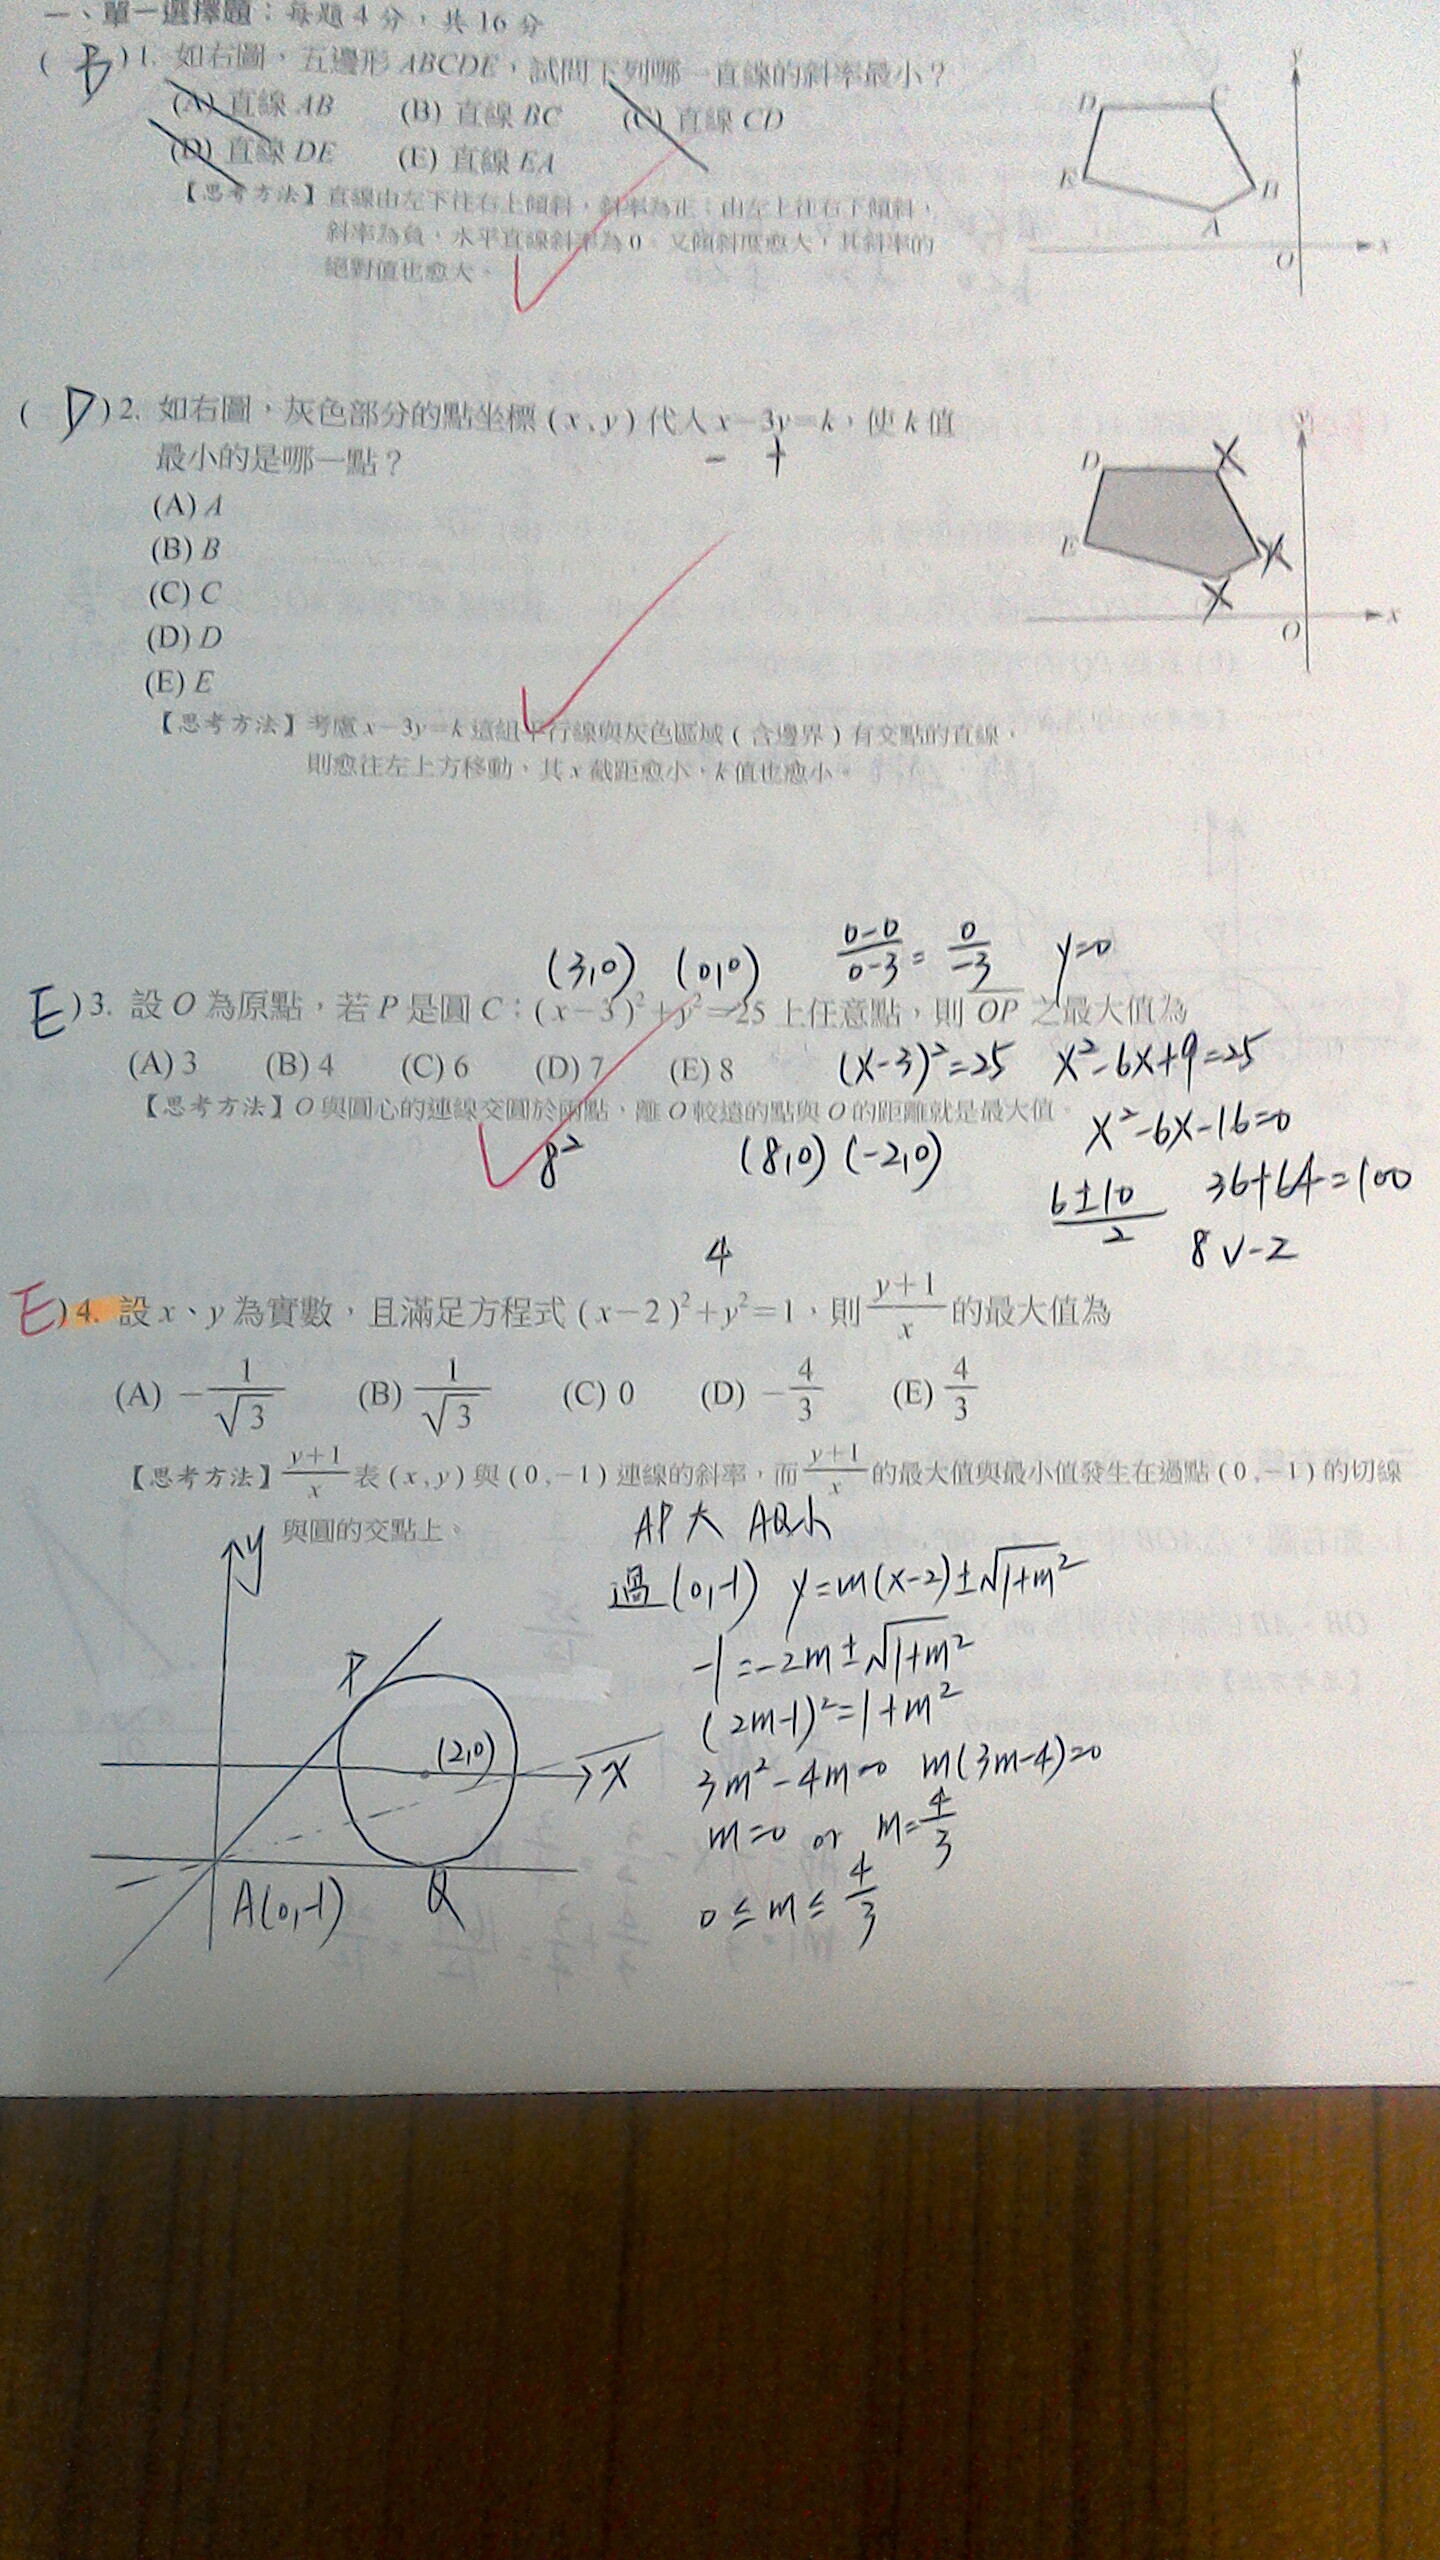 一、單一選擇題:每題4分,共16分
(B)1. 如右圖,五邊形ABCDE,試問下列哪一直線的斜率最小?
(A) 直線AB (B) 直線BC (C) 直線CD
(D) 直線DE (E) 直線EA
【思考方法】直線由左下往右上傾斜,斜率為正;由左上往右下傾斜,
斜率為負,水平直線斜率為0。又傾斜度愈大,其斜率的
絕對值也愈大。
y
D C
E B
A
O x
(D)2. 如右圖,灰色部分的點坐標(x,y)代入x-3y=k,使k值
- +
最小的是哪一點?
(A) A
(B) B
(C) C
(D) D
(E) E
y
D
E
O x
【思考方法】考慮x-3y=k這組平行線與灰色區域(含邊界)有交點的直線,
則愈往左上方移動,其x截距愈小,k值也愈小。
(3,0) (0,0) (0-0)/(0-3) = 0/-3 y=0
E)3. 設O為原點,若P是圓C:(x-3)²+y²=25上任意點,則OP之最大值為
(A) 3 (B) 4 (C) 6 (D) 7 (E) 8 (x-3)²=25 x²-6x+9=25
【思考方法】O與圓心的連線交圓於兩點,離O較遠的點與O的距離就是最大值。
8² (8,0) (-2,0) x²-6x-16=0
(6±10)/2 36+64=100
8 ∨ -2
4
E)4. 設x、y為實數,且滿足方程式(x-2)²+y²=1,則(y+1)/x的最大值為
(A) -1/√3 (B) 1/√3 (C) 0 (D) -4/3 (E) 4/3
【思考方法】(y+1)/x表(x,y)與(0,-1)連線的斜率,而(y+1)/x的最大值與最小值發生在過點(0,-1)的切線
與圓的交點上。
AP大 AQ小
過(0,-1) y=m(x-2)±√(1+m²)
-1=-2m±√(1+m²)
(2m-1)²=1+m²
3m²-4m=0 m(3m-4)=0
m=0 or m=4/3
0≤m≤4/3
y
P
(2,0)
x
A(0,-1) Q